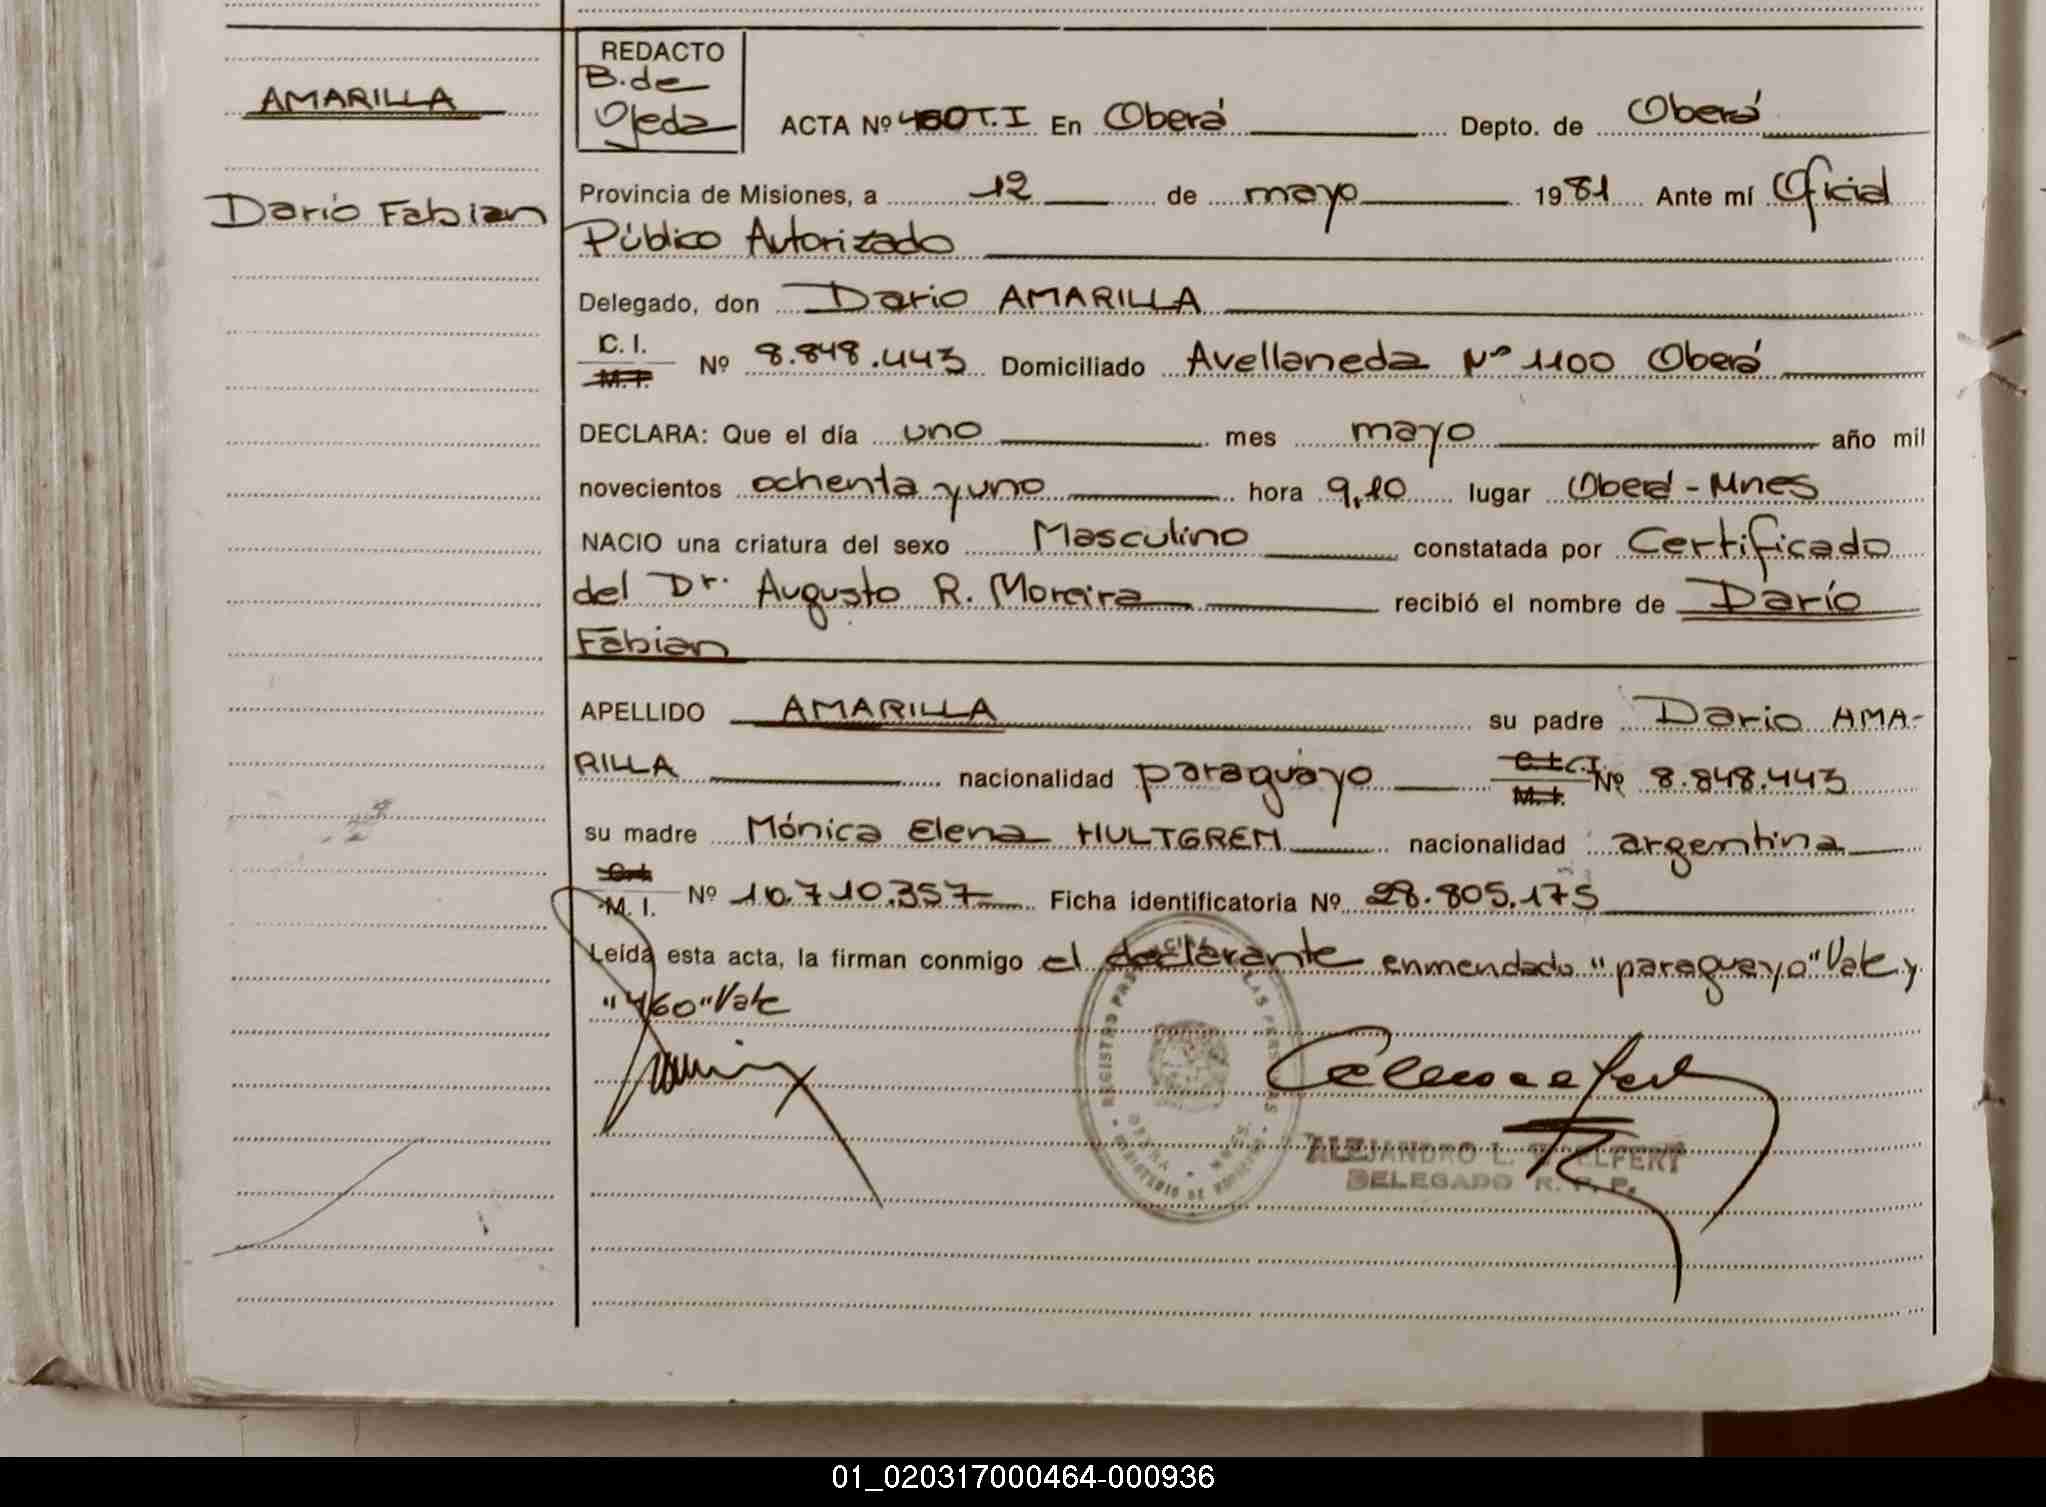 AMARILLA
Darío Fabian
REDACTO
B. de
Ojeda
ACTA Nº 460 T.I En Oberá Depto. de Oberá
Provincia de Misiones, a 12 de mayo 1981 Ante mí Oficial
Público Autorizado
Delegado, don Dario AMARILLA
C. I.
M. I. Nº 8.848.443 Domiciliado Avellaneda Nº 1100 Oberá
DECLARA: Que el día uno mes mayo año mil
novecientos ochenta y uno hora 9,10 lugar Oberá - Mnes
NACIO una criatura del sexo Masculino constatada por Certificado
del Dr. Augusto R. Moreira recibió el nombre de Darío
Fabian
APELLIDO AMARILLA su padre Dario AMA-
RILLA nacionalidad paraguayo C.I. C.I.
M. I. Nº 8.848.443
su madre Mónica Elena HULTGREN nacionalidad argentina
C. I.
M. I. Nº 10.710.357 Ficha identificatoria Nº 28.805.175
Leída esta acta, la firman conmigo el declarante enmendado "paraguayo" Vale y
"460" Vale
REGISTRO LAS PERSONAS
MINISTERIO DE
ALEJANDRO L.
DELEGADO R. P. P.
01_020317000464-000936